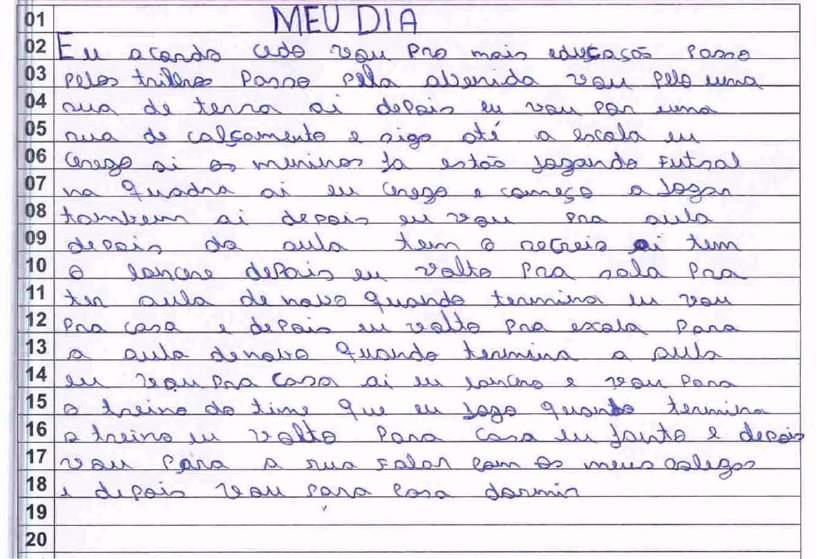 01 MEU DIA
02 Eu acordo cedo vou pro mais educação Passo
03 Pelos trilhos Passo Pela abenida vou Pelo uma
04 rua de terra ai depois eu vou por uma
05 rua de calçamento e sigo até a escola eu
06 chego ai os meninos ja estão jogando Futsal
07 na quadra ai eu chego e começo a Jogar
08 tambem ai depois eu vou pra aula
09 depois da aula tem o recreio ai tem
10 o lanche depois eu volto Pra sala Pra
11 ter aula de novo quando termina eu vou
12 Pra casa e depois eu volto Pra escola Para
13 a aula denovo quando termina a aula
14 eu vou Pra Casa ai eu lancho e vou Para
15 o treino do time que eu jogo quando termina
16 o treino eu volto Para casa eu janto e depois
17 vou Para a rua Falar com os meus colegos
18 e depois vou Para casa dormir
19
20